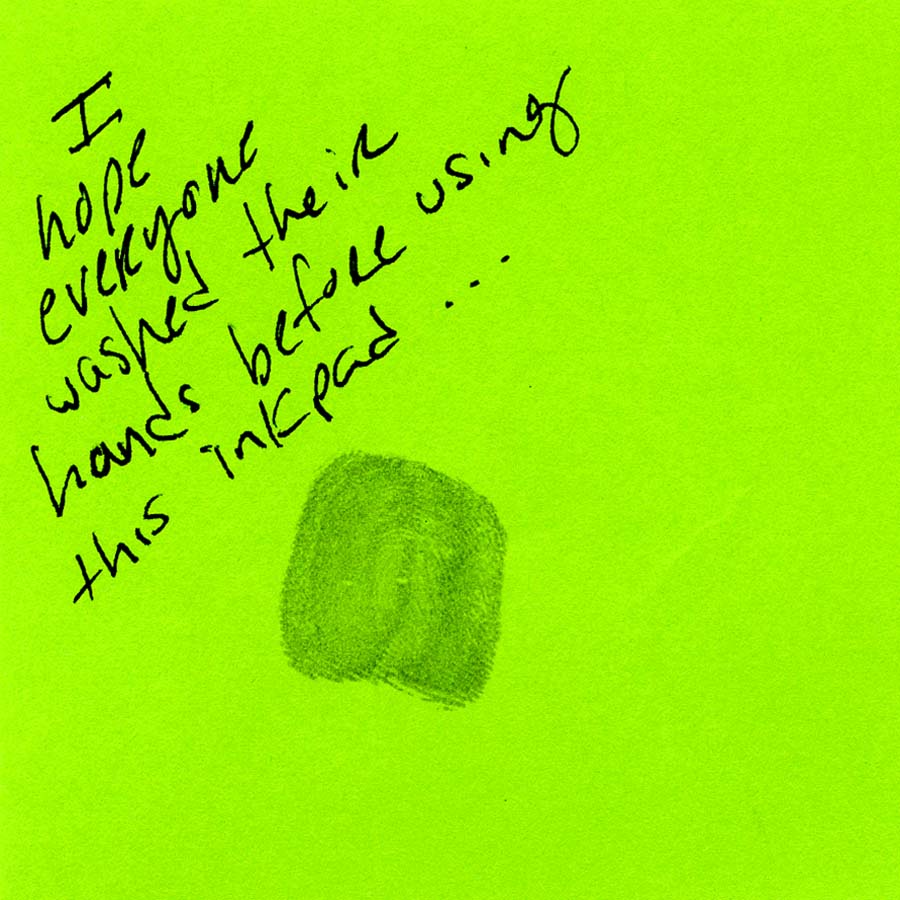 I
hope
everyone
washed their
hands before using
this inkpad ...